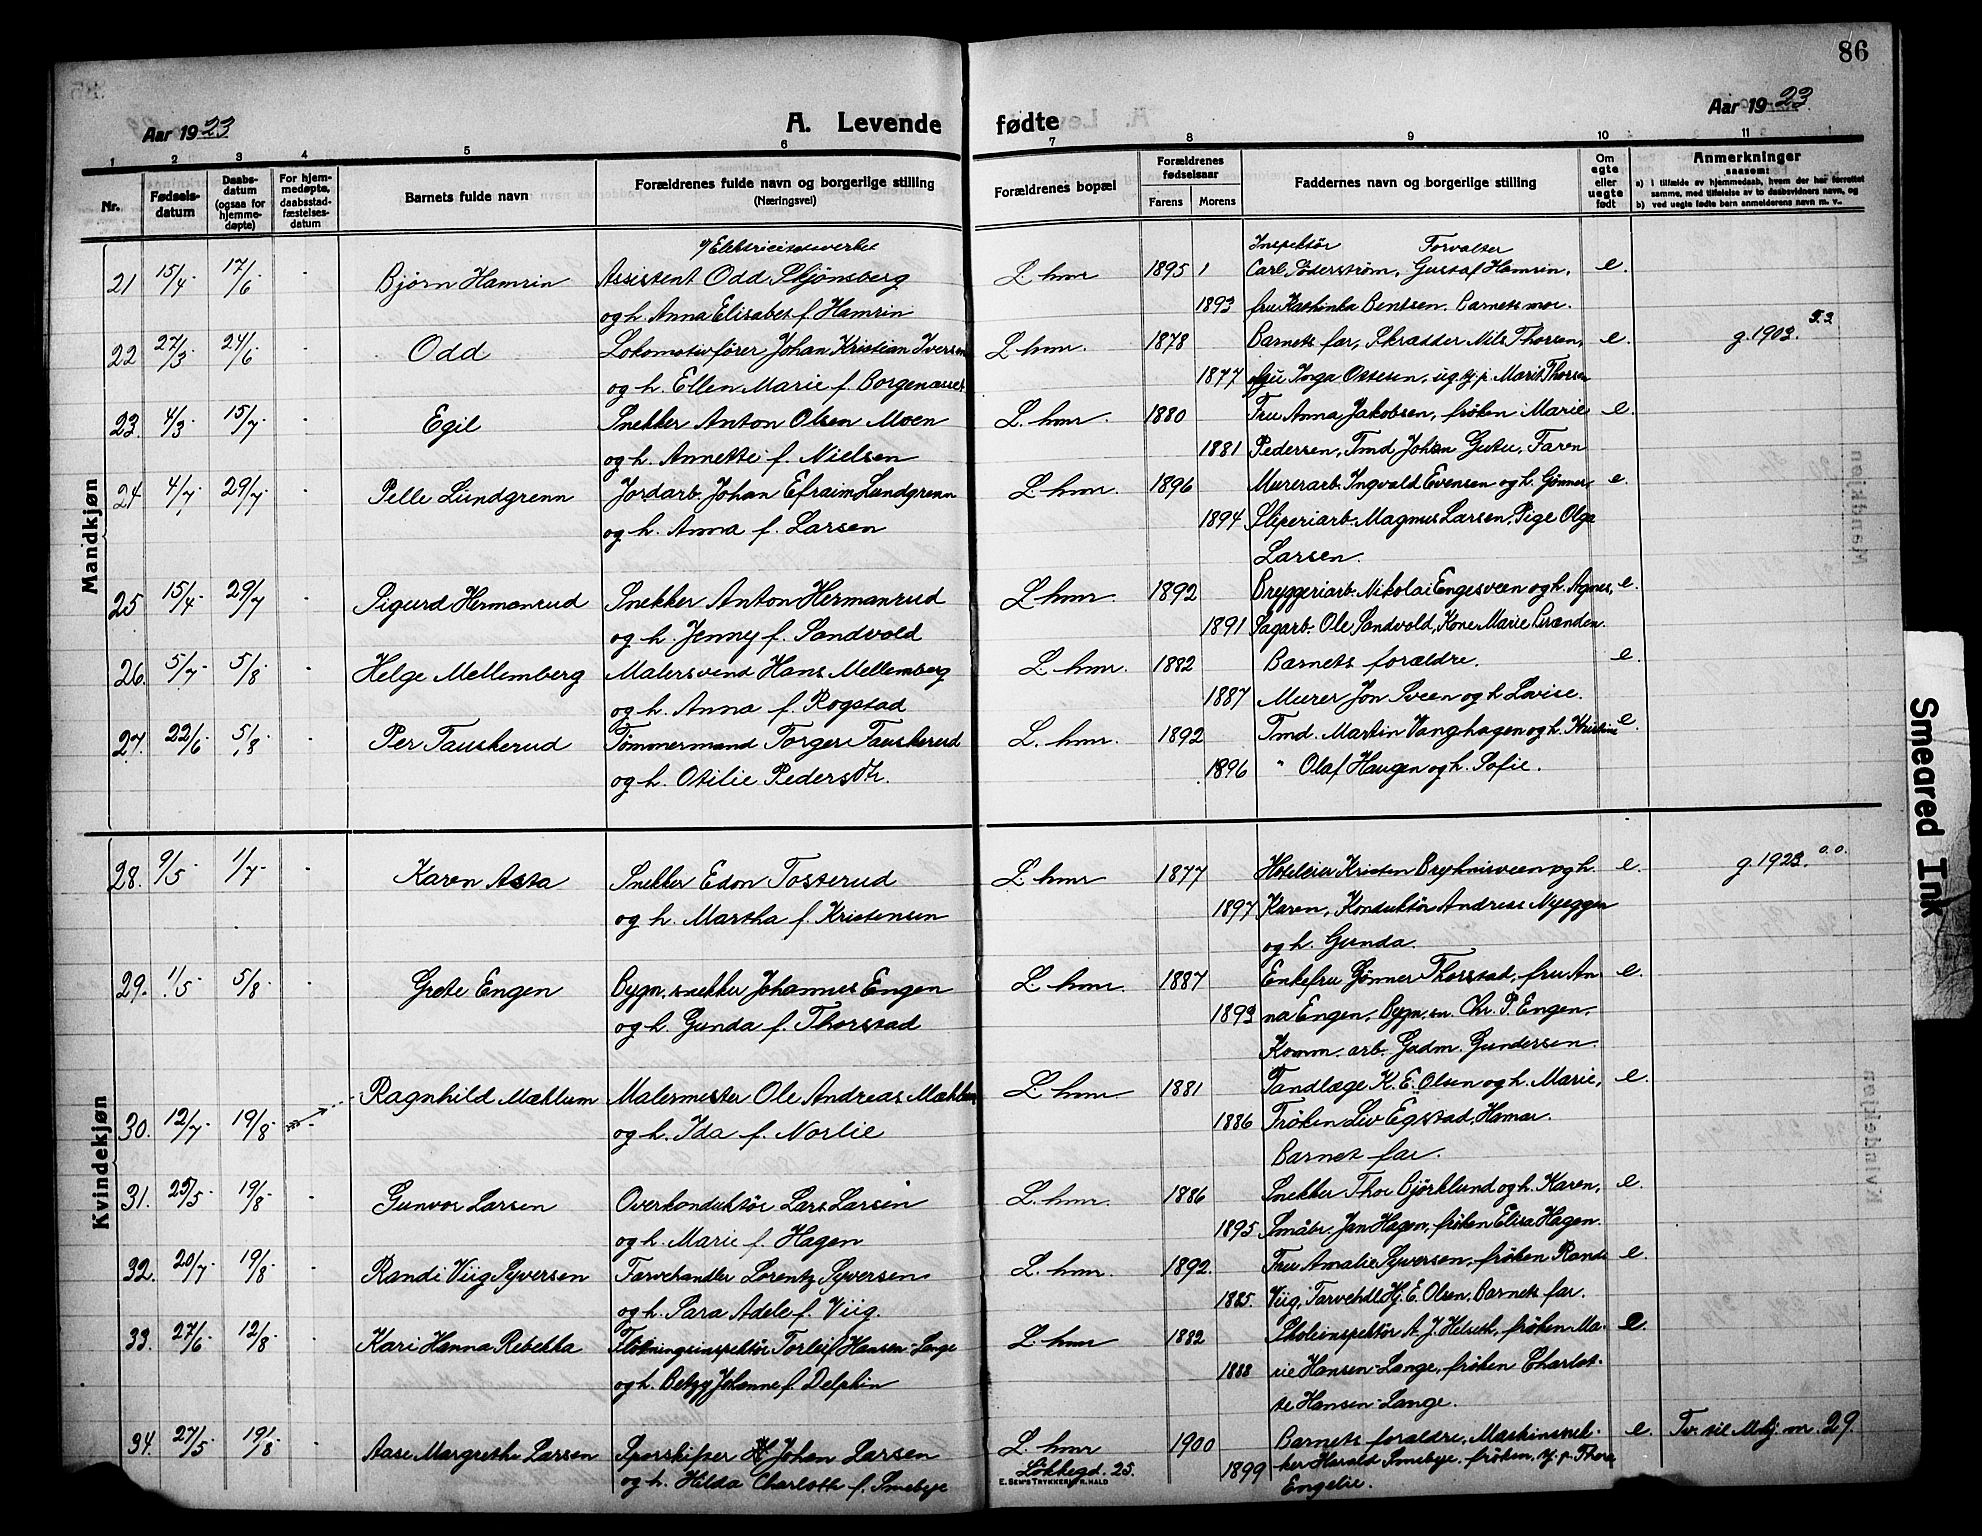 86
Aar 1923
A. Levende fødte
Aar 1923.
1 2 3 4 5 6 7 8 9 10 11
Nr.
Fødselsdatum
Daabsdatum (ogsaa for hjemmedøpte)
For hjemmedøpte, daabsstadfæstelsesdatum
Barnets fulde navn
Forældrenes fulde navn og borgerlige stilling
(Næringsvei)
Forældrenes bopæl
Forældrenes fødselsaar
Farens Morens
Faddernes navn og borgerlige stilling
Om egte eller uegte født
Anmerkninger
saasom:
a) i tilfælde av hjemmedaab, hvem der har forrettet samme, med tilføielse av to daabsvidners navn, og
b) ved uegte fødte barn anmelderens navn m. v..
Mandkjøn
v/Elektricitetsverket Inspektør Forvalter
21 15/4 17/6 - Bjørn Hamrin Assistent Odd Skjønsberg L.hmr 1895 Carl Söderstrøm, Gustaf Hamrin, e.
og h. Anna Elisabet f. Hamrin 1893 fru Kathinka Bentsen. Barnets mor.
22 27/3 24/6 - Odd Lokomotivfører Johan Kristian Iversen L.hmr. 1878 Barnets far, Skrædder Nils Thorsen, e. g. 1903. T.3
og h. Ellen Marie f. Borgenæset 1877 Inga Ottesen, ug. tj. p. Marit Thorsen
23. 4/3 15/7 - Egil Snekker Anton Olsen Moen L.hmr. 1880 Fru Anna Jakobsen, frøken Marie e.
og h. Annette f. Nielsen 1881 Pedersen, Tmd Johan Gutu, Faren
24 4/7 29/7 - Pelle Lundgrenn Jordarb. Johan Efraim Lundgrenn L.hmr. 1896 Murerarb. Ingvald Evensen og h. Gønner, e.
og h. Anna f. Larsen 1894 Sliperiarb. Magnus Larsen, Pige Olga
Larsen.
25 15/4 29/7 - Sigurd Hermanrud Snekker Anton Hermanrud L.hmr. 1892 Bryggeriarb. Nikolai Engesveen og h. Agnes, e.
og h. Jenny f. Sandvold 1891 Sagarb. Ole Sandvold, Kone Marie
26. 5/7 5/8 - Helge Mellemberg Malersvend Hans Mellemberg L.hmr. 1882 Barnets forældre. e.
og h. Anna f. Rogstad 1887 Murer Jon Sveen og h. Lovise.
27. 22/6 5/8 - Per Tauskerud Tømmermand Torger Tauskerud L.hmr. 1892 Tmd. Martin Vanghagen og h. Kristine e.
og h. Otilie Pedersdtr. 1896 " Olaf Haugen og h. Sofie.
Kvindekjøn
28. 9/5 1/7 - Karen Asta Snekker Edon Tosterud L.hmr 1877 Hoteleier Kristen Bryhnisveen og h. e. g. 1923. o.o.
og h. Martha f. Kristensen 1897 Karen, Konduktør Andreas Nyeggen
og h. Gunda.
29. 1/5 5/8 - Grete Engen Bygn.snekker Johannes Engen L.hmr. 1887 Enkefru Gønner Thorstad, fru An- e.
og h. Gunda f. Thorstad 1893 na Engen, Bygn.sn. Chr. P. Engen,
Komm. arb. Gudm. Gundersen.
30. 12/7 19/8 - Ragnhild Mæhlum Malermester Ole Andreas Mæhlum L.hmr 1881 Tandlæge K. E. Olsen og h. Marie, e.
og h. Ida f. Norlie 1886 Frøken Liv Egstad, Hamar.
Barnets far.
31. 25/5 19/8 - Gunvor Larsen Overkonduktør Lars Larsen L.hmr. 1886 Snekker Thor Björklund og h. Karen, e.
og h. Marie f. Hagen 1895 Småbr. Jan Hagen, frøken Elisa Hagen.
32. 20/7 19/8 - Randi Viig Syversen Farvehandler Lorentz Syversen L.hmr. 1892. Fru Amalie Syversen, frøken Randi e.
og h. Sara Adele f. Viig. 1885. Viig, Farvehdl. Hj. E. Olsen, Barnets far.
33. 27/6 12/8 - Kari Hanna Rebekka Fløtningsinspektør Torleif Hansen-Lange L.hmr 1882 Skoleinspektør A. J. Helseth, frøken Ma- e.
og h. Betzy Johanne f. Delphin 1888 rie Hansen-Lange, frøken Charlot-
te Hansen-Lange.
34. 27/5 19/8 - Aase Margrethe Larsen Sporskifter Johan Larsen L.hmr 1900 Barnets forældre, Maskinsnek- e. Tv. til Mkj. nr. 29.
og h. Hilda Charlotte f. Smebye Løkkegd. 25. 1899 ker Harald Smebye, frøken, tj. p. Thora
Engelie.
E. SEM'S TRYKKERI, FR.HALD
Smeared Ink